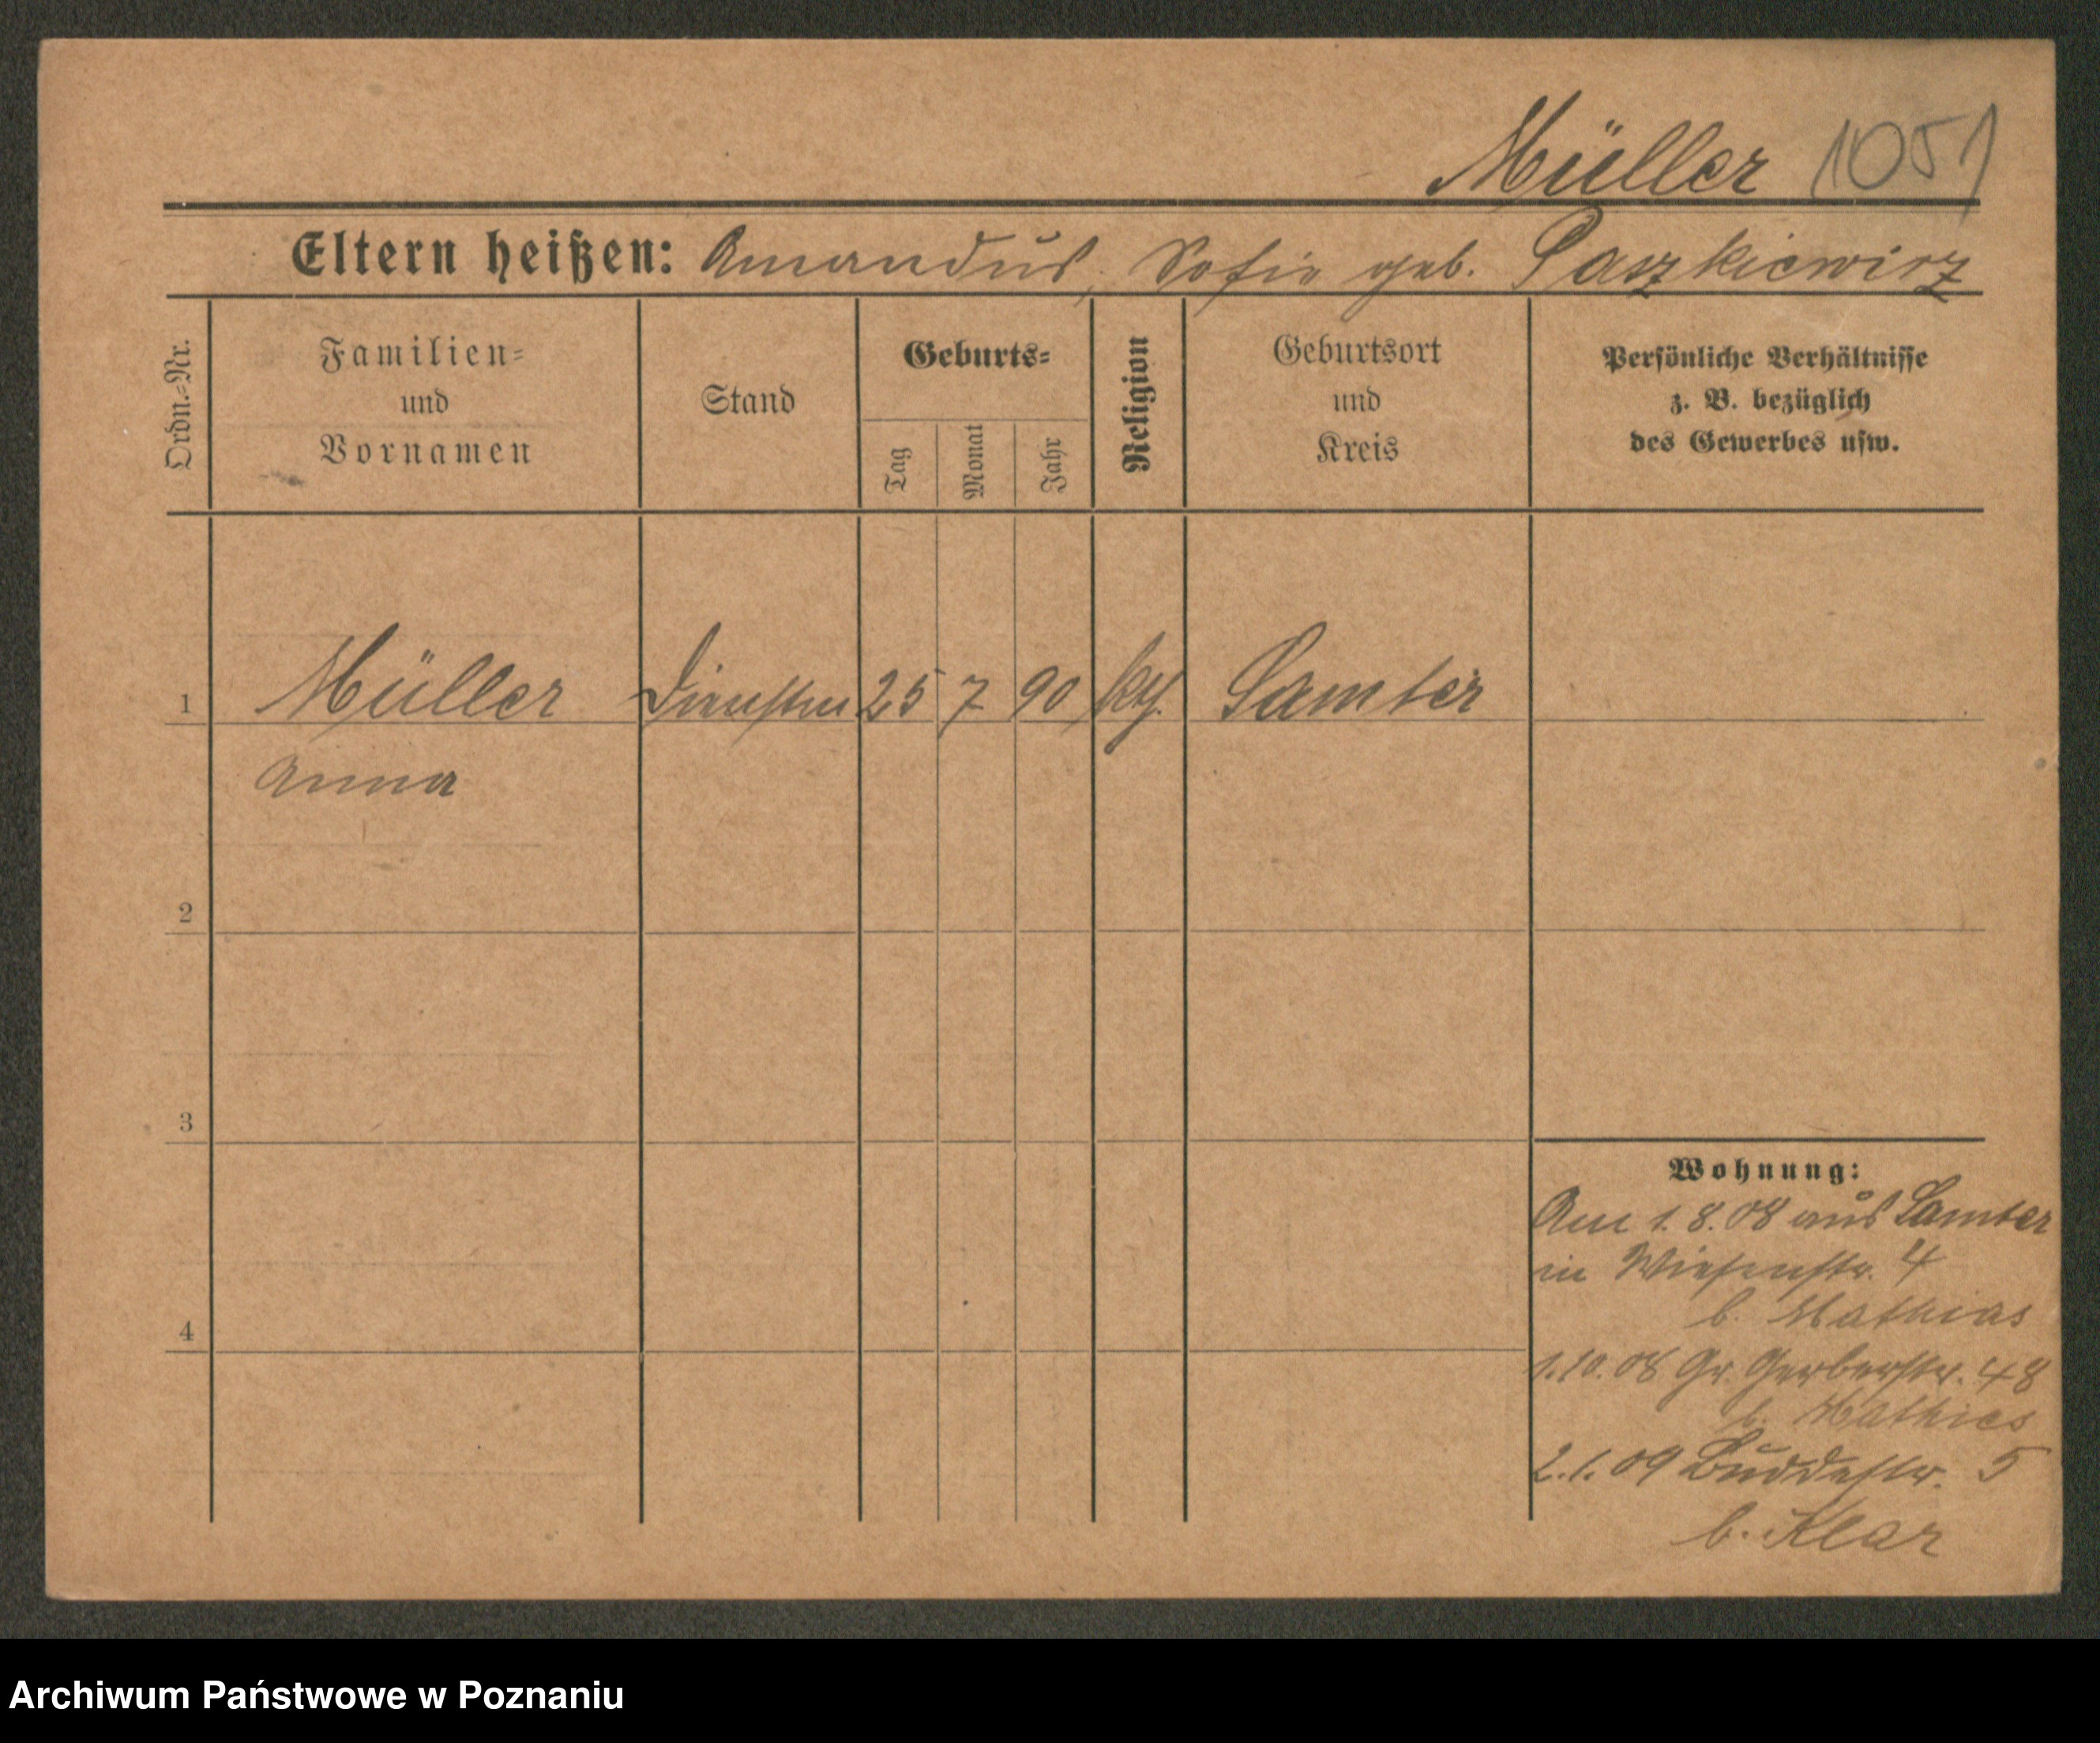 Müller 1051
Eltern heißen: Amandus, Sofie geb. Paszkiewicz
Ordn.-Nr.
Familien-
und
Vornamen
Stand
Geburts-
Tag
Monat
Jahr
Religion
Geburtsort
und
Kreis
Persönliche Verhältnisse
z. B. bezüglich
des Gewerbes usw.
1 Müller 25 7 90 kth. Samter
Anna
2
3
4
Wohnung:
Am 1.8.08 aus Samter
in Wiesenstr. 4
b. Mathias
1.10.08 Gr. Gerberstr. 48
b. Mathias
2.1.09 Buddestr. 5
b. Klar
Archiwum Państwowe w Poznaniu